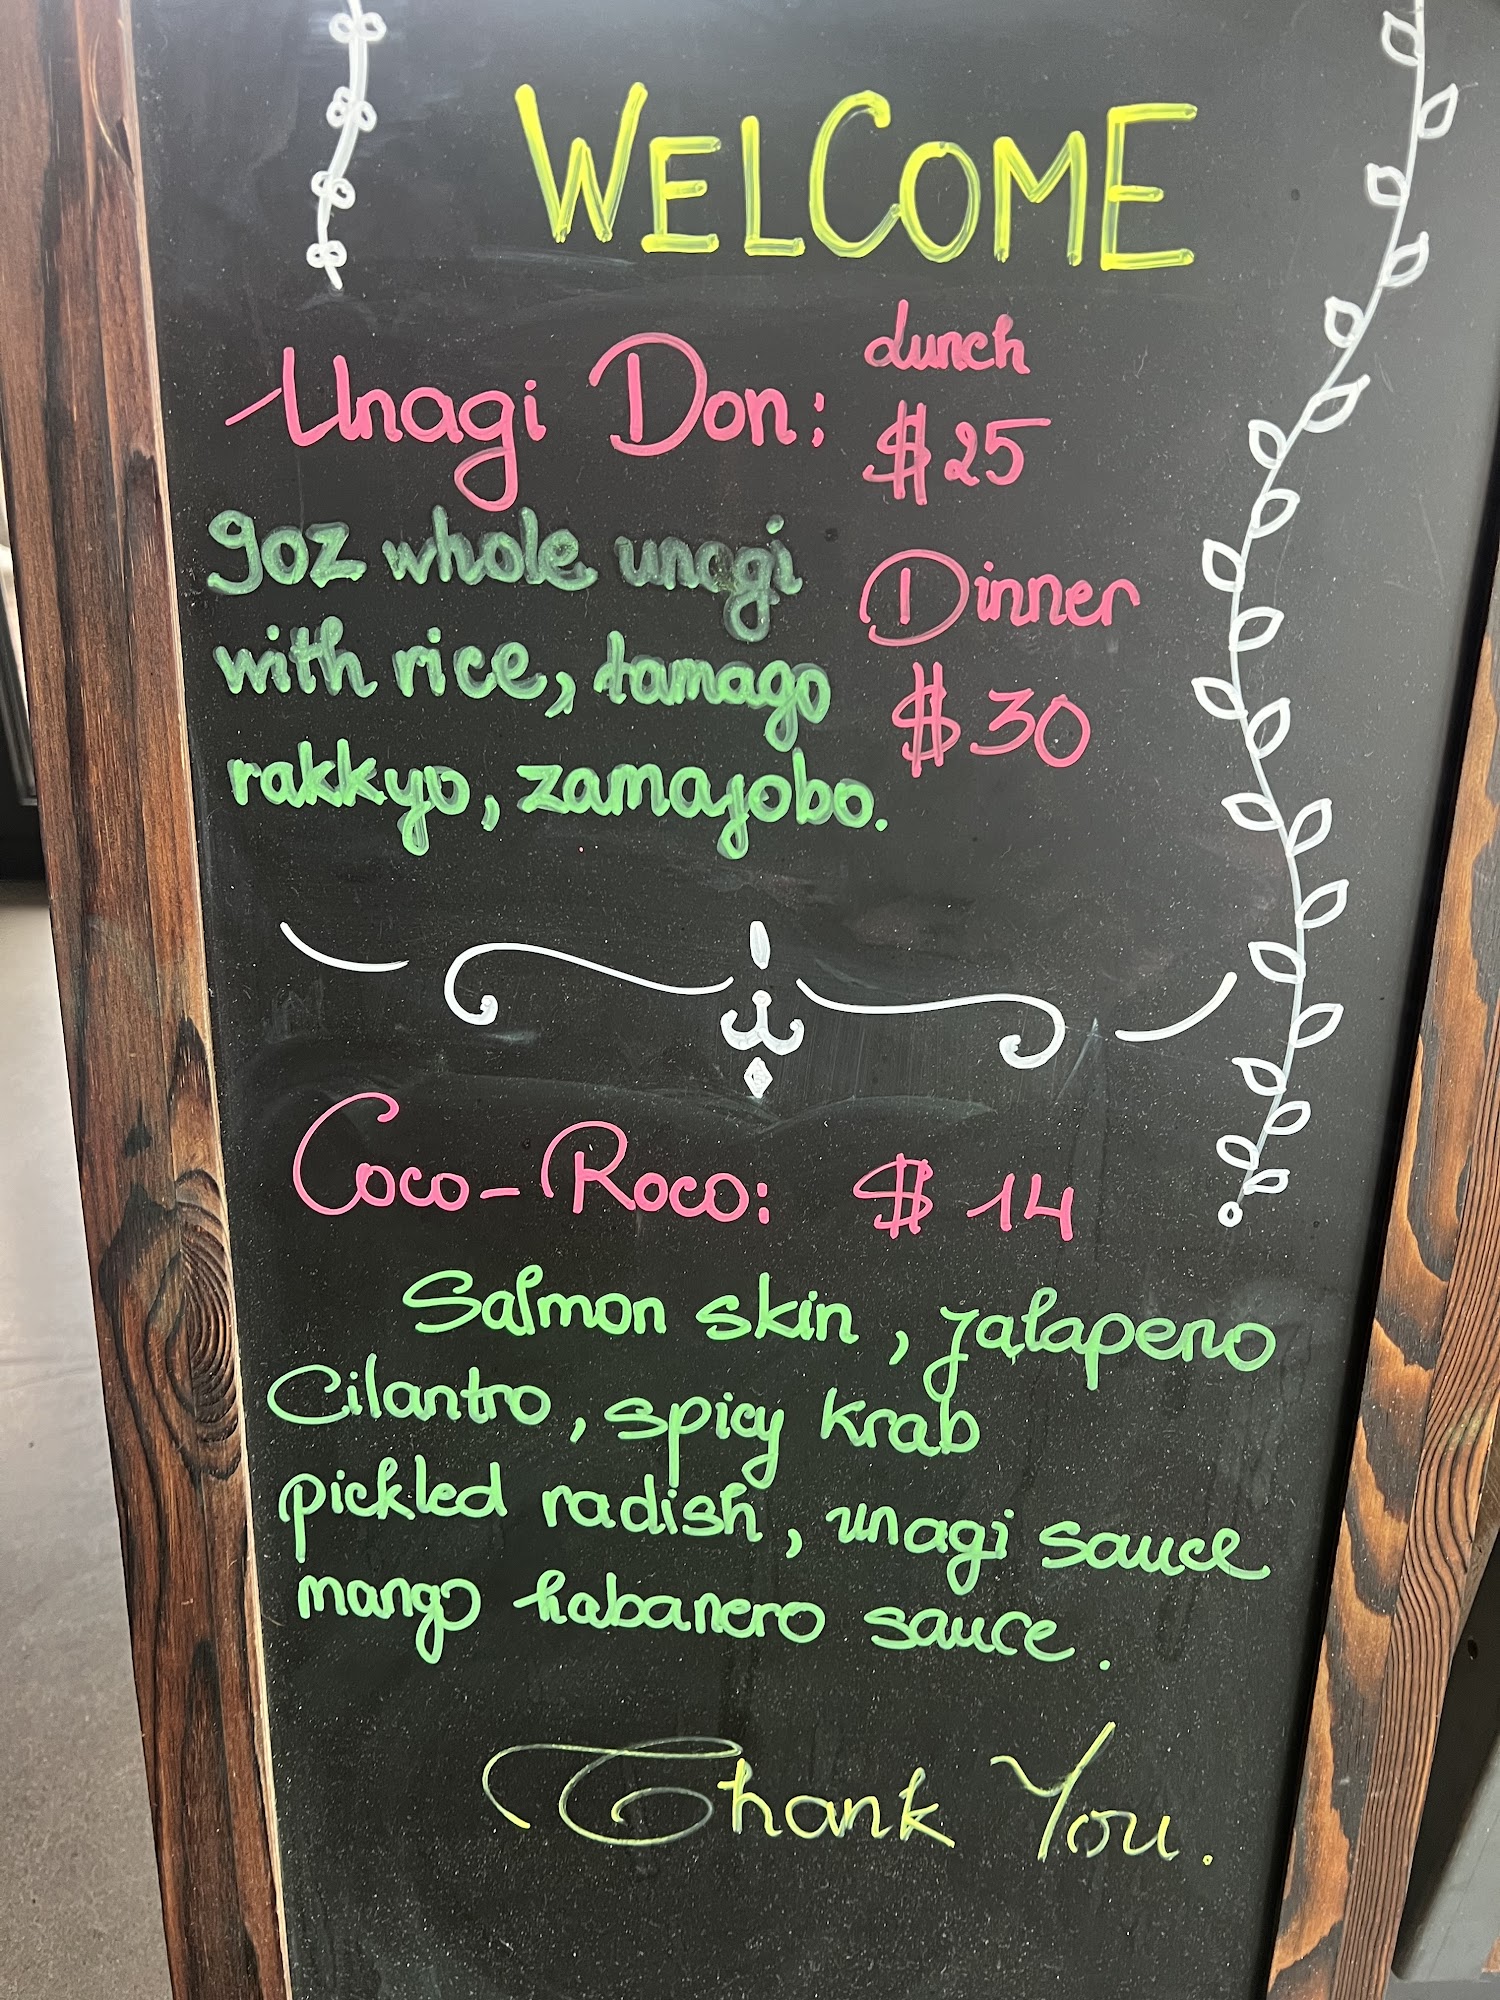 WELCOME
Unagi Don:
lunch
$25
9oz whole unagi
with rice, tamago
rakkyo, zamajobo.
Dinner
$30
Coco-Roco: $14
Salmon skin, jalapeno
Cilantro, spicy krab
pickled radish, unagi sauce
mango habanero sauce.
Thank You.